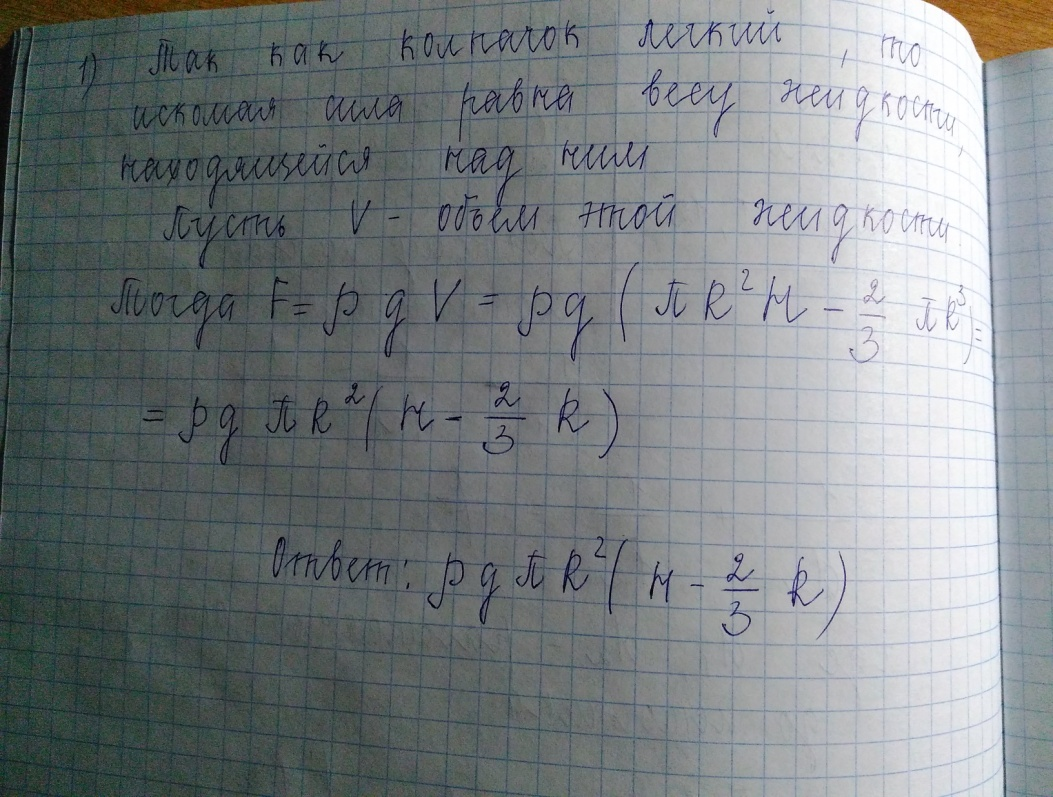 1) Так как колпачок легкий, то
искомая сила равна весу жидкости,
находящейся над ним
Пусть V - объем этой жидкости.
Тогда F = ρ g V = ρg ( π R² H - 2/3 π R³) =
= ρg π R² ( H - 2/3 R )
Ответ: ρ g π R² ( H - 2/3 R )